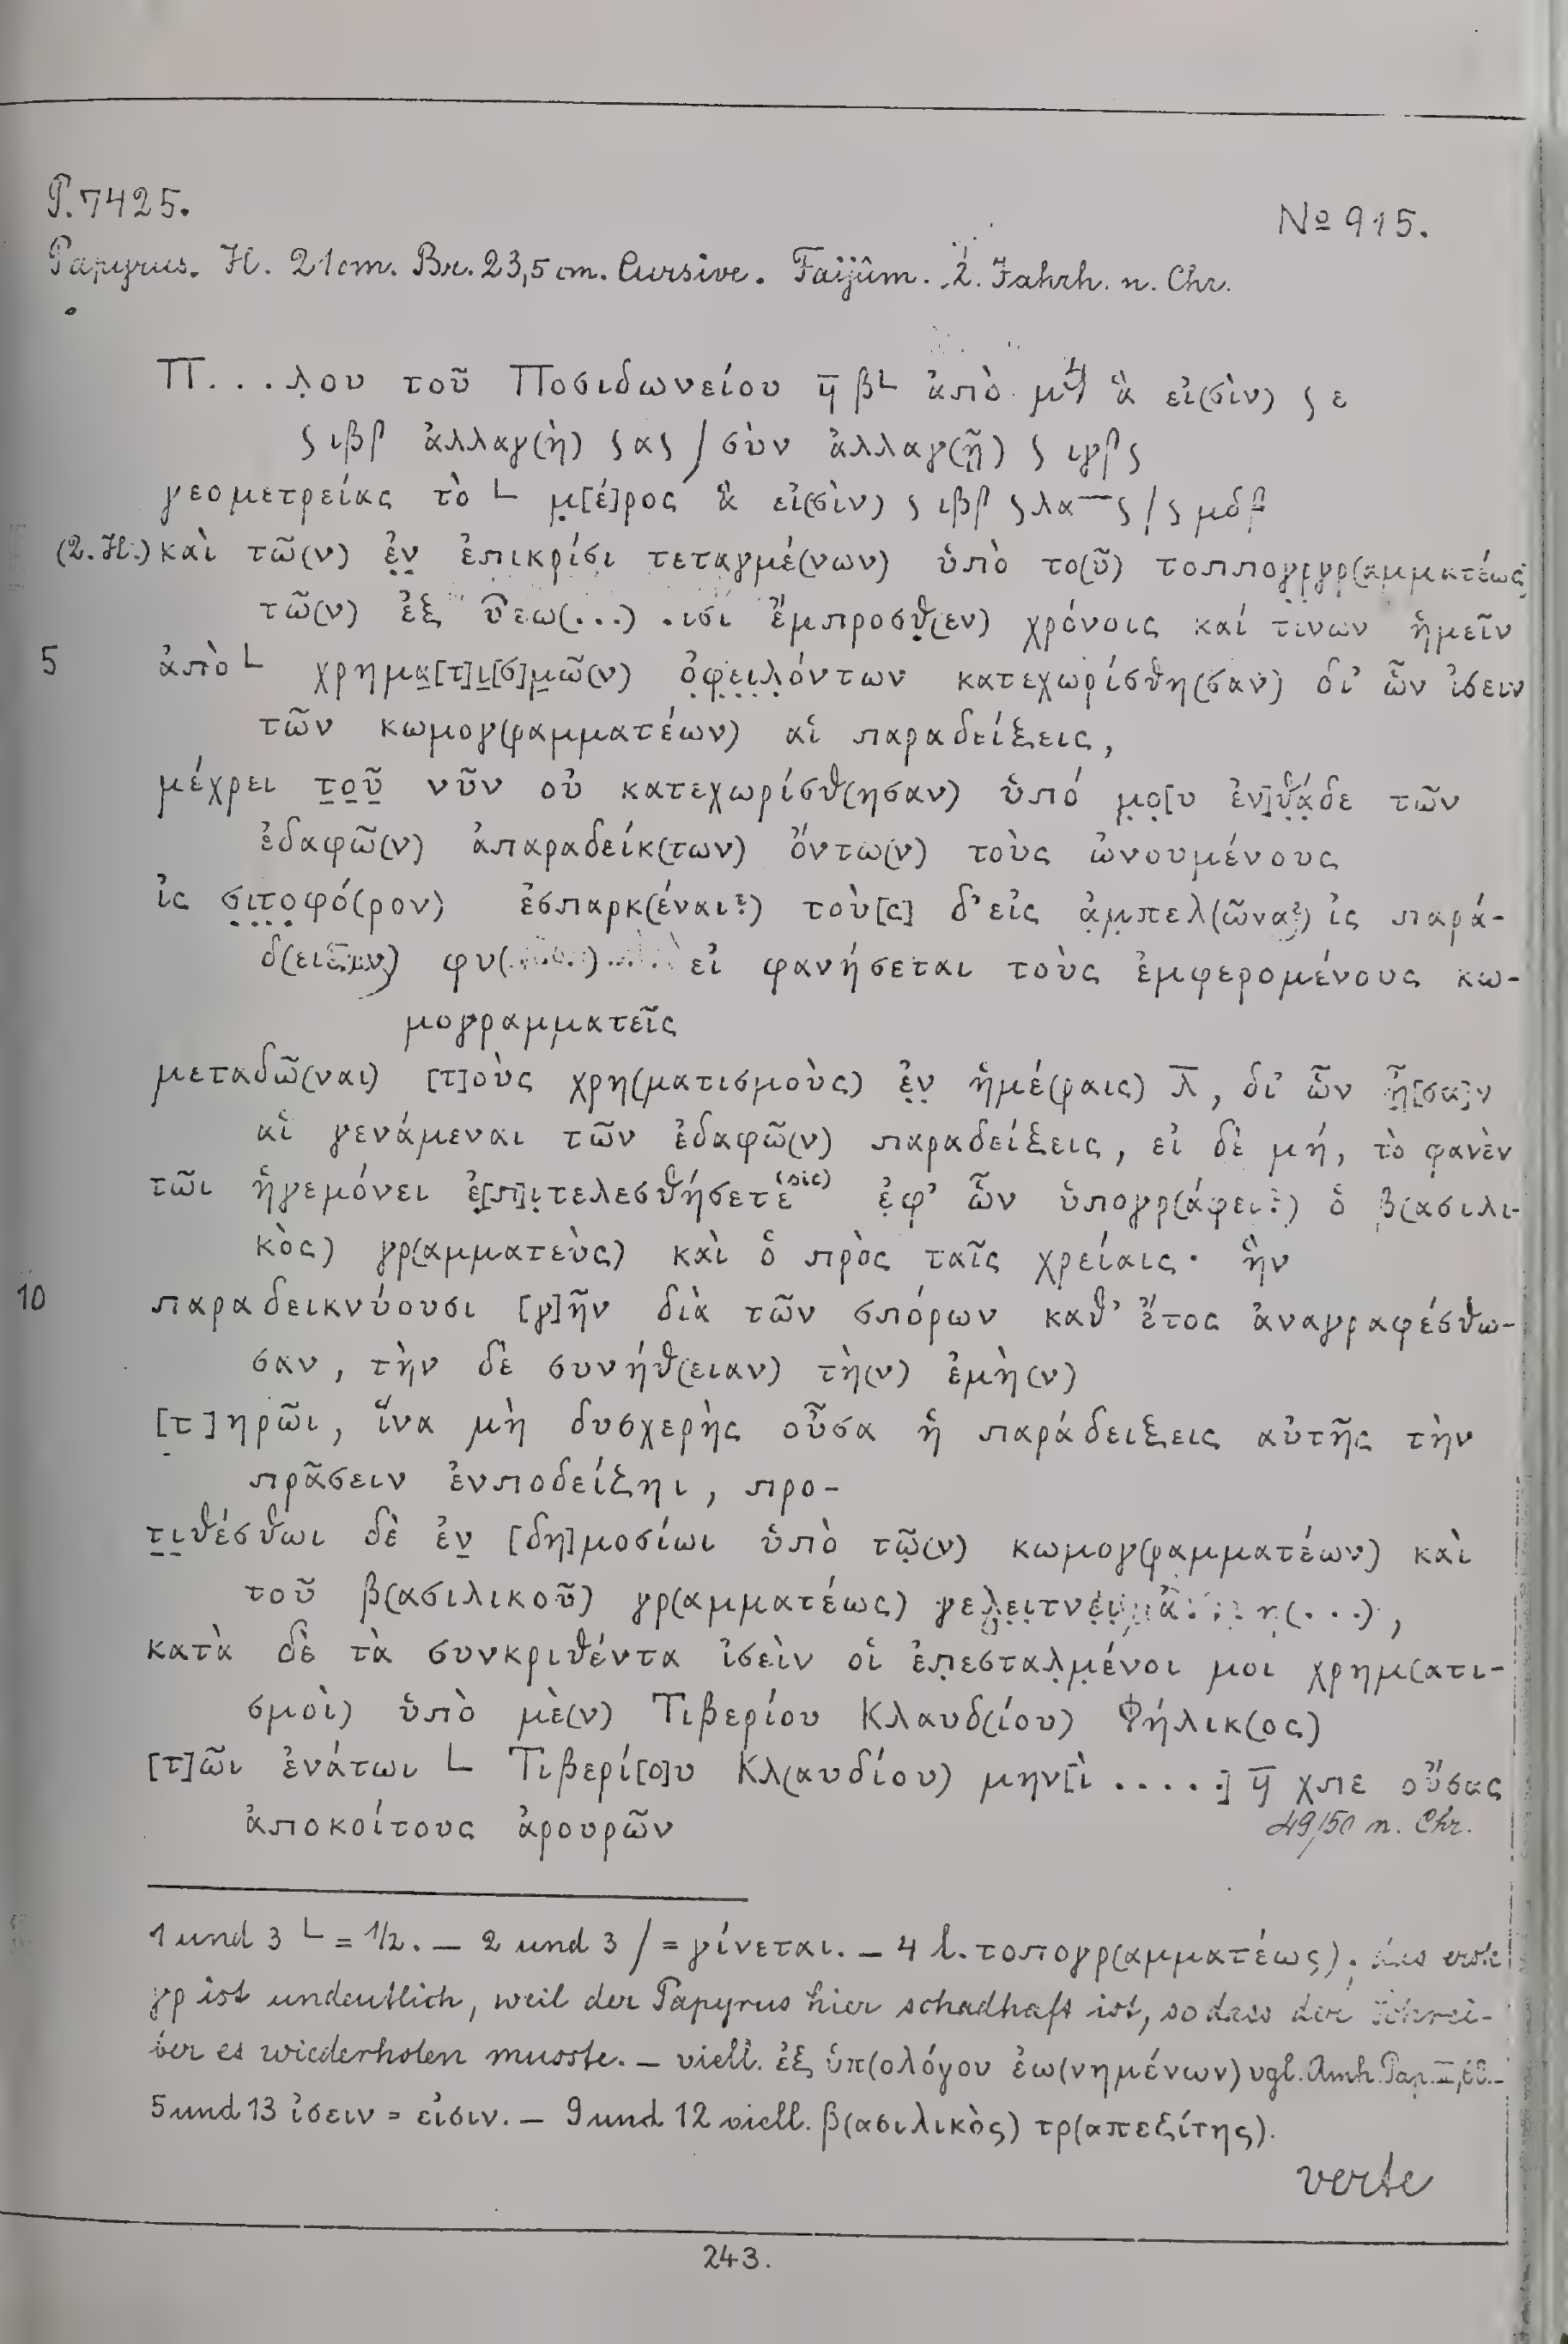 P. 7425.
№ 915.
Papyrus. H. 21 cm. Br. 23,5 cm. Cursive. Faijûm. 2. Jahrh. n. Chr.
Π...λ̣ου τοῦ Ποσιδωνείου β└ ἀπὸ ἃ εἰ(σὶν) ε
ιβ ἀλλαγ(ὴ) α / σὺν ἀλλαγ(ῇ) ιγ
γεομετρείας τὸ └ μ̣[έ]ρος ἃ εἰ(σὶν) ιβ λα / μδ
(2. H.) καὶ τῶ(ν) ἐ̣ν̣ ἐπικρίσι τεταγμέ(νων) ὑπὸ το(ῦ) τοππογ̣ρ̣γρ(αμματέως)
τῶ(ν) ἐξ .ισι ἔμπροσθ̣(εν) χρόνοις καί τινων ἡμεῖν
5 ἀπὸ └ χρημα̣[τ]ι̣[σ]μ̣ῶ(ν) ὀ̣φ̣ε̣ι̣λ̣όντων κατεχωρίσθη(σαν) δι’ ὧν ἰσειν
τῶν κωμογ(ραμματέων) αἱ παραδείξεις,
μέχρει τ̣ο̣ῦ̣ νῦν οὐ κατεχωρίσθ(ησαν) ὑπό μ̣ο̣[υ ἐν]θ̣ά̣δε τῶν
ἐδαφῶ(ν) ἀπαραδείκ(των) ὄντω(ν) τοὺς ὠνουμένους
ἰς σ̣ι̣τ̣ο̣φό(ρον) ἐσπαρκ(έναι?) τοὺ[ς] δ’ εἰς ἀ̣μ̣πελ(ῶνα?) ἰς παρά-
δ(ειξιν) εἰ φανήσεται τοὺς ἐμφερομένους κω-
μογραμματεῖς
μεταδῶ(ναι) [τ]οὺς χρη(ματισμοὺς) ἐ̣ν̣ ἡμέ(ραις) λ̅, δι’ ὧν ἦ̣[σα]ν
αἱ γενάμεναι τῶν ἐδαφῶ(ν) παραδείξεις, εἰ δὲ μή, τὸ φανὲν
τῶι ἡγεμόνει ἐ̣[π]ι̣τελεσθήσετέ (sic) ἐ̣φ’ ὧν ὑπογρ(άφει?) ὁ β(ασιλι-
κὸς) γρ(αμματεὺς) καὶ ὁ πρὸς ταῖς χρείαις· ἣν
10 παραδεικνύουσι [γ]ῆν διὰ τῶν σπόρων καθ’ ἔτος ἀναγραφέσθω-
σαν, τὴν δὲ συνήθ(ειαν) τὴ(ν) ἐμὴ(ν)
[τ]ηρῶι, ἵνα μὴ δυσχερὴς οὖσα ἡ παράδειξεις αὐτῆς τὴν
πρᾶσειν ἐνποδείξηι, προ-
τ̣ι̣θέσθωι δὲ ἐν̣ [δη]μοσίωι ὑπὸ τῶ̣(ν) κωμογ(ραμματέων) καὶ
τοῦ β(ασιλικοῦ) γρ(αμματέως)
κατὰ δὲ τὰ συνκριθέντα ἰσεὶν οἱ ἐπ̣εσταλ̣μ̣ένοι μοι χρημ(ατι-
σμοὶ) ὑπὸ μὲ(ν) Τιβερίου Κλαυδ(ίου) Φήλικ(ος)
[τ]ῶι ἐνάτωι └ Τιβερί[ο]υ Κλ(αυδίου) μην[ὶ .....] χπε οὔσας
ἀποκοίτους ἀρουρῶν 49/50 n. Chr.
1 und 3 └ = 1/2. – 2 und 3 / = γίνεται. – 4 l. τοπογρ(αμματέως); das erste
γρ ist undeutlich, weil der Papyrus hier schadhaft ist, so dass der Schrei-
ber es wiederholen musste. – viell. ἐξ ὑπ(ολόγου ἐω(νημένων) vgl. Amh. Pap. II,
5 und 13 ἰσειν = εἰσιν. – 9 und 12 viell. β(ασιλικὸς) τρ(απεξίτης).
verte
243.